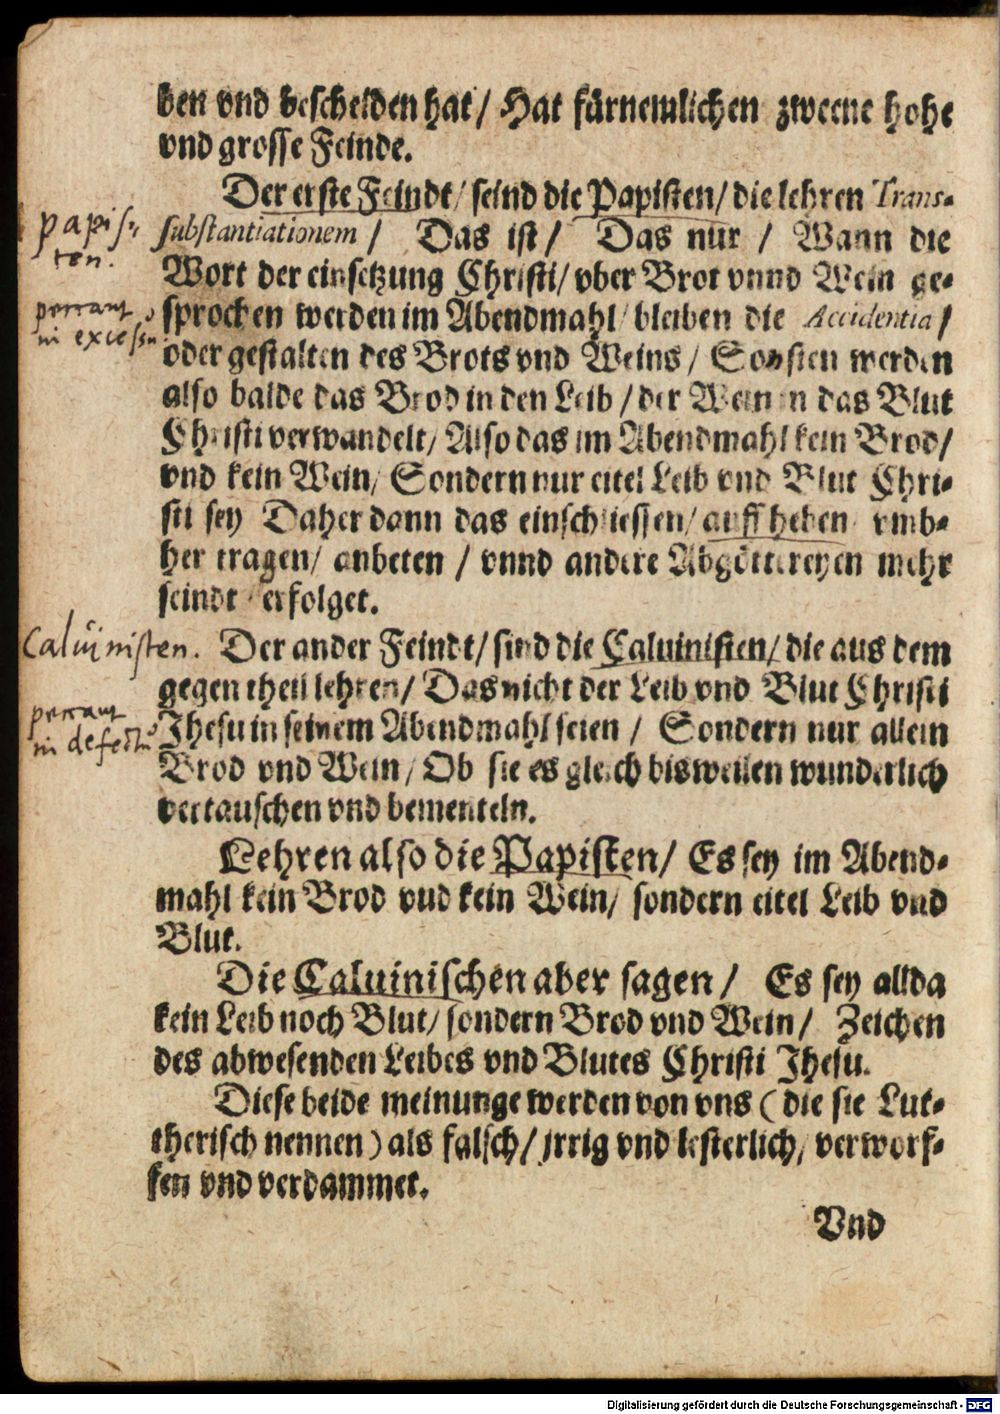 ben vnd bescheiden hat / Hat fürnemlichen zweene hohe
vnd grosse Feinde.
Der erste Feindt / seind die Papisten / die lehren Trans-
Papis-
ten.
substantiationem / Das ist / Das nur / Wann die
Wort der einsetzung Christi / vber Brot vnnd Wein ge-
perrant
in excessu
sprochen werden im Abendmahl / bleiben die Accidentia /
oder gestalten des Brots vnd Weins / Sonsten werden
also balde das Brod in den Leib / der Wein in das Blut
Christi verwandelt / Also das im Abendmahl kein Brod /
vnd kein Wein / Sondern nur eitel Leib vnd Blut Chri-
sti sey Daher dann das einschliessen / auffheben vmb-
her tragen / anbeten / vnnd andere Abgöttereyen mehr
seindt erfolget.
Caluinisten.
Der ander Feindt / sind die Caluinisten / die aus dem
gegentheil lehren / Das nicht der Leib vnd Blut Christi
perrant
in defectu
Jhesu in seinem Abendmahl seien / Sondern nur allein
Brod vnd Wein / Ob sie es gleich bisweilen wunderlich
vertauschen vnd bementeln.
Lehren also die Papisten / Es sey im Abend-
mahl kein Brod vnd kein Wein / sondern eitel Leib vnd
Blut.
Die Caluinischen aber sagen / Es sey allda
kein Leib noch Blut / sondern Brod vnd Wein / Zeichen
des abwesenden Leibes vnd Blutes Christi Jhesu.
Diese beide meinunge werden von vns ( die sie Lut-
therisch nennen ) als falsch / jrrig vnd lesterlich, verworf-
fen vnd verdammet.
Vnd
Digitalisierung gefördert durch die Deutsche Forschungsgemeinschaft - DFG